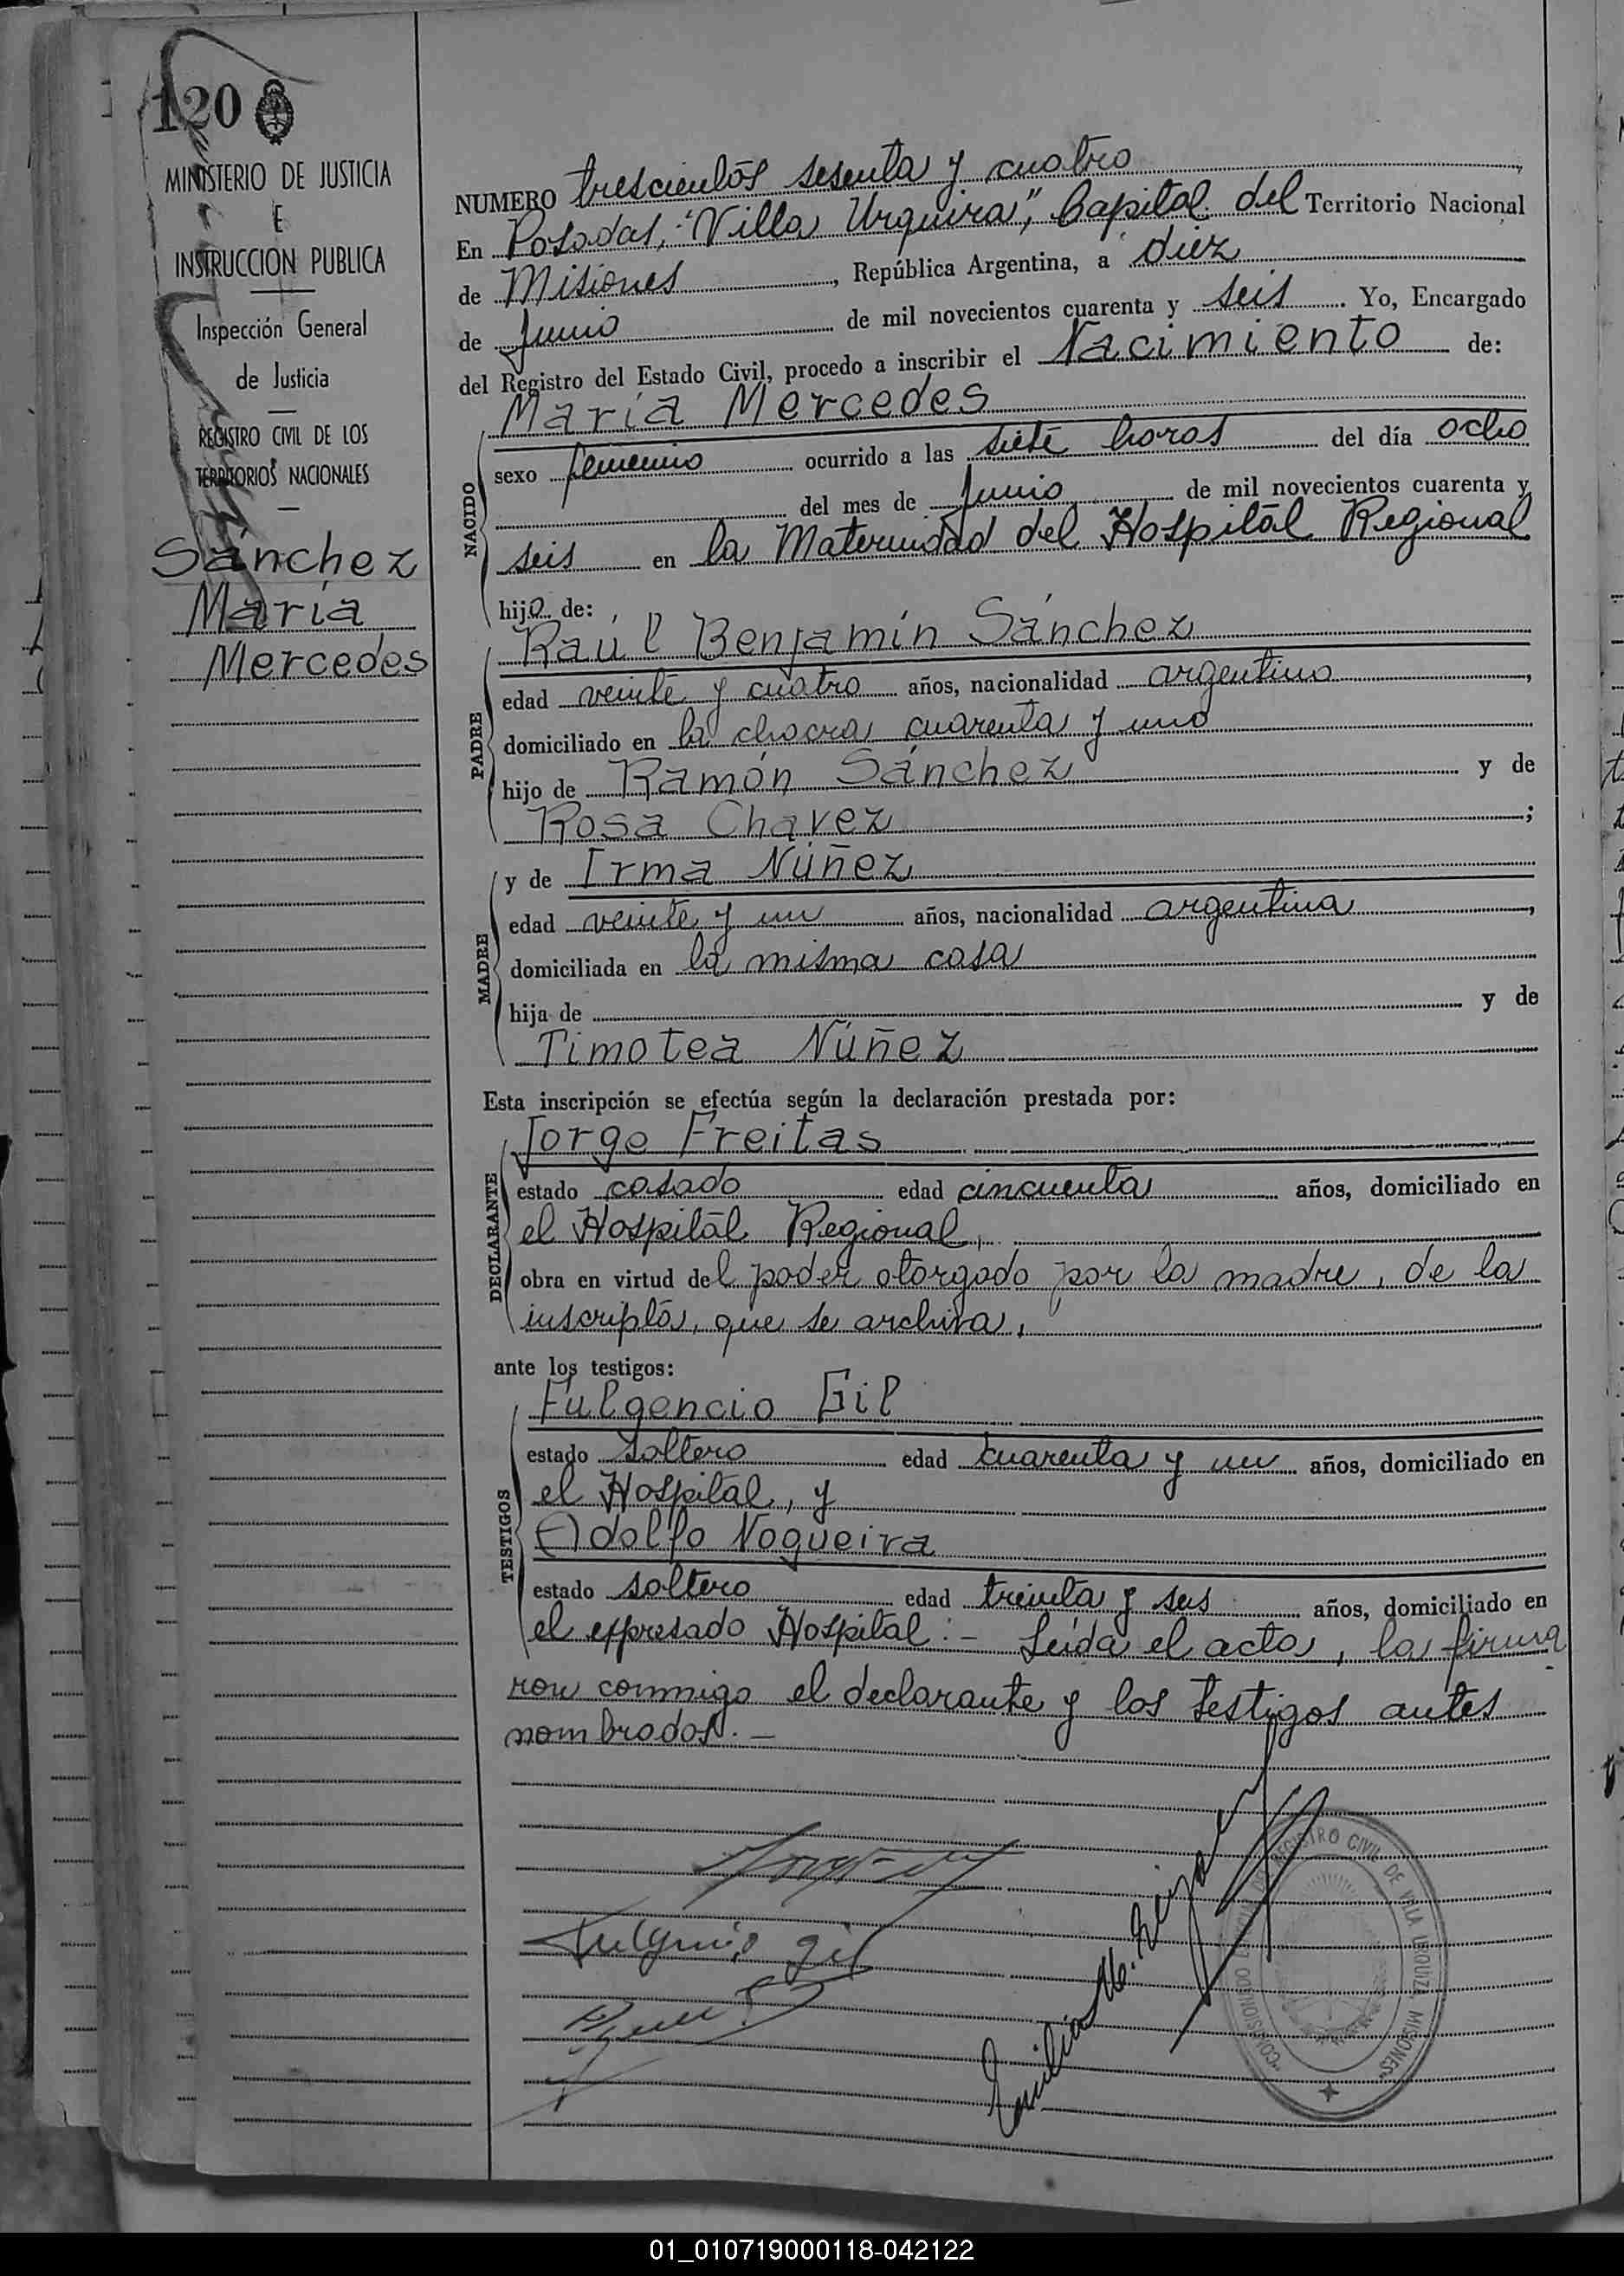 120
MINISTERIO DE JUSTICIA
E
INSTRUCCION PUBLICA
Inspección General
de Justicia
REGISTRO CIVIL DE LOS
TERRITORIOS NACIONALES
Sánchez
María
Mercedes
NUMERO trescientos sesenta y cuatro
En Posadas, "Villa Urquiza", Capital del Territorio Nacional
de Misiones, República Argentina, a diez
de Junio de mil novecientos cuarenta y seis. Yo, Encargado
del Registro del Estado Civil, procedo a inscribir el Nacimiento de:
María Mercedes
NACIDO
sexo femenino ocurrido a las siete horas del día ocho
del mes de Junio de mil novecientos cuarenta y
seis en la Maternidad del Hospital Regional
hija de:
PADRE
Raúl Benjamín Sánchez
edad veinte y cuatro años, nacionalidad argentino,
domiciliado en la chacra cuarenta y uno
hijo de Ramón Sánchez y de
Rosa Chavez;
MADRE
y de Irma Núñez
edad veinte y un años, nacionalidad argentina,
domiciliada en la misma casa
hija de y de
Timotea Núñez
Esta inscripción se efectúa según la declaración prestada por:
DECLARANTE
Jorge Freitas
estado casado edad cincuenta años, domiciliado en
el Hospital Regional,
obra en virtud del poder otorgado por la madre, de la
inscripta, que se archiva,
ante los testigos:
TESTIGOS
Fulgencio Gil
estado soltero edad cuarenta y un años, domiciliado en
el Hospital, y
Adolfo Nogueira
estado soltero edad treinta y seis años, domiciliado en
el expresado Hospital.- Leída el acta, la firma
ron conmigo el declarante y los testigos antes
nombrados.-
Fulgencio Gil
Emilia M.
REGISTRO CIVIL DE VILLA URQUIZA MISIONES
01_010719000118-042122